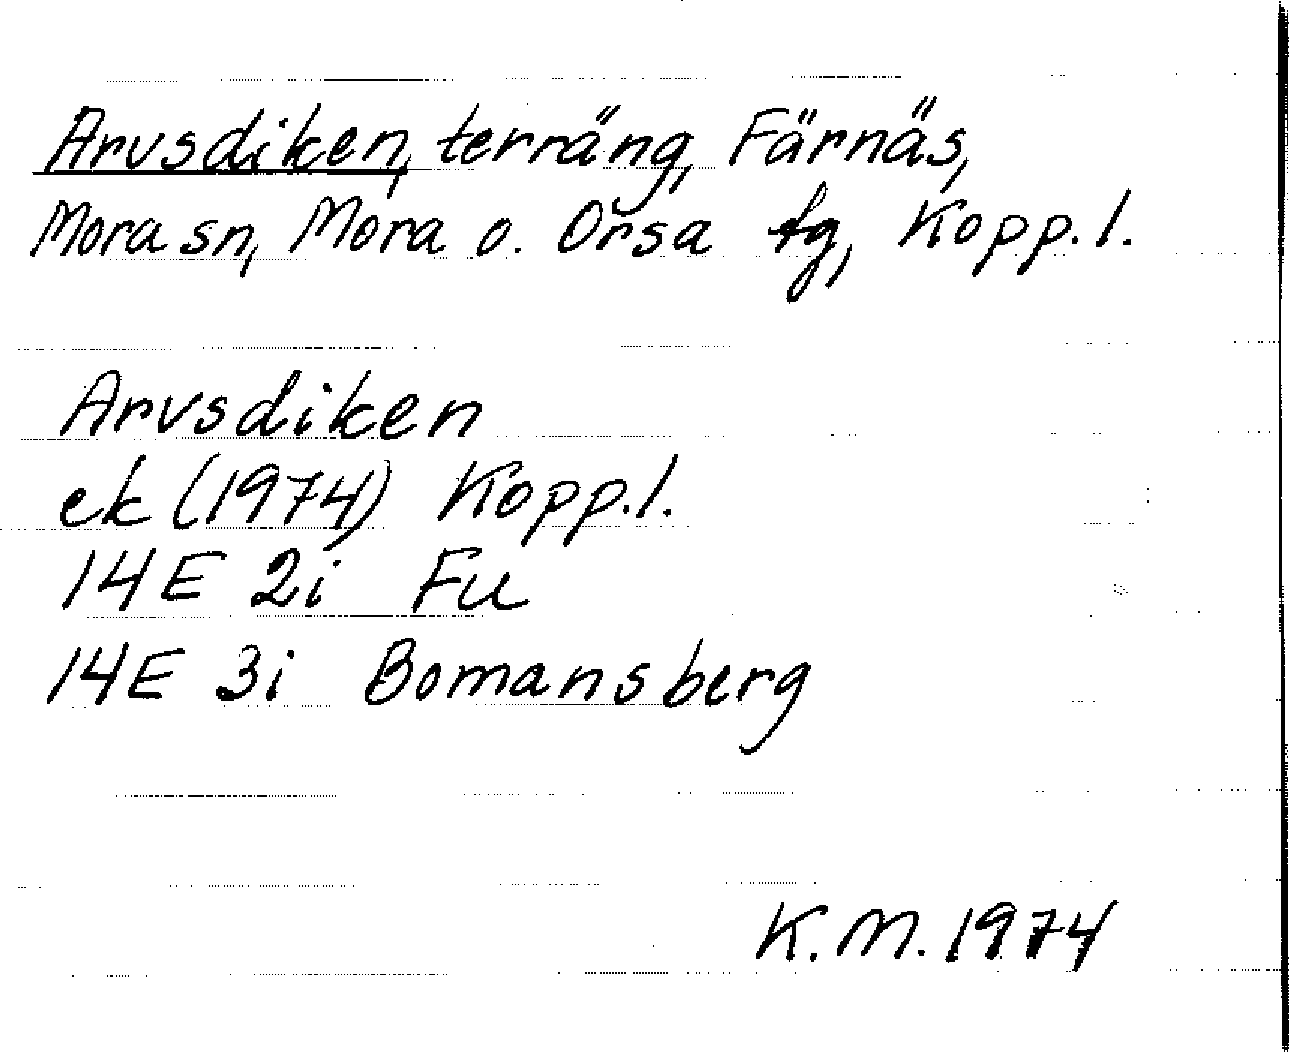 Arvsdiken, terräng, Färnäs,
Mora sn, Mora o. Orsa tg, Kopp. l.
Arvsdiken
ek (1974) Kopp. l.
14E 2i Fu
14E 3i Bomansberg
K. M. 1974